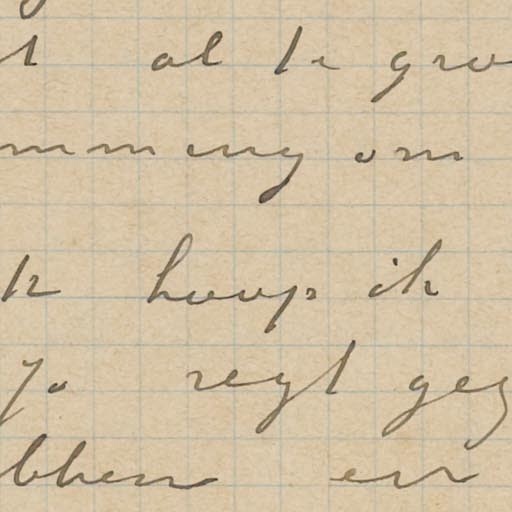 t al te gro
mming om
k hoop ik
zo regt geg
bben en